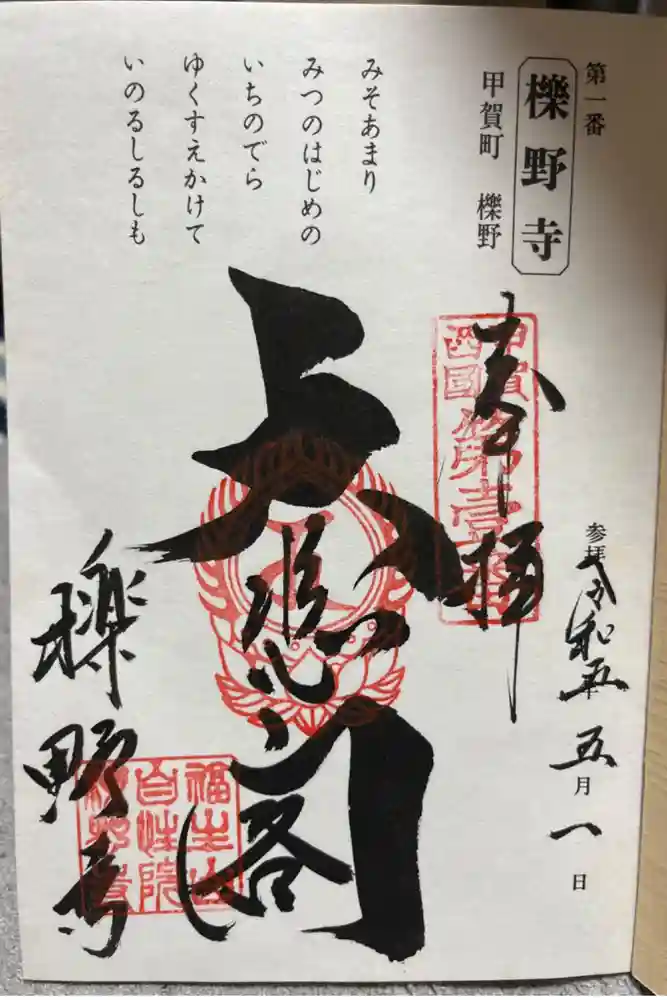 第一番
櫟野寺
甲賀町 櫟野
みそあまり
みつのはじめの
いちのでら
ゆくすえかけて
いのるしるしも
奉拝
甲賀
西国
第壹番
参拝 令和五年
五月一日
大悲閣
櫟野寺
福生山
自性院
櫟野寺